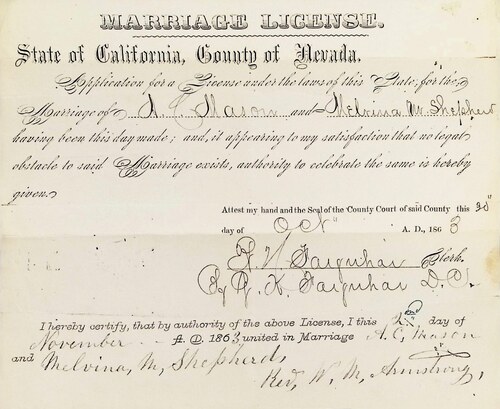 MARRIAGE LICENSE.
State of California, County of Nevada.
Application for a License under the laws of this State, for the
Marriage of A. C. Mason and Melvina M. Shepherd
having been this day made; and, it appearing to my satisfaction that no legal
obstacle to said Marriage exists, authority to celebrate the same is hereby
given.
Attest my hand and the Seal of the County Court of said County this 30"
day of Oct A. D., 1863
Farquhar Clerk.
By Farquhar D. C.
I hereby certify, that by authority of the above License, I this day of
November A. D. 1863, united in Marriage A. C. Mason
and Melvina, M, Shepherd,
Rev, W. M, Armstrong,